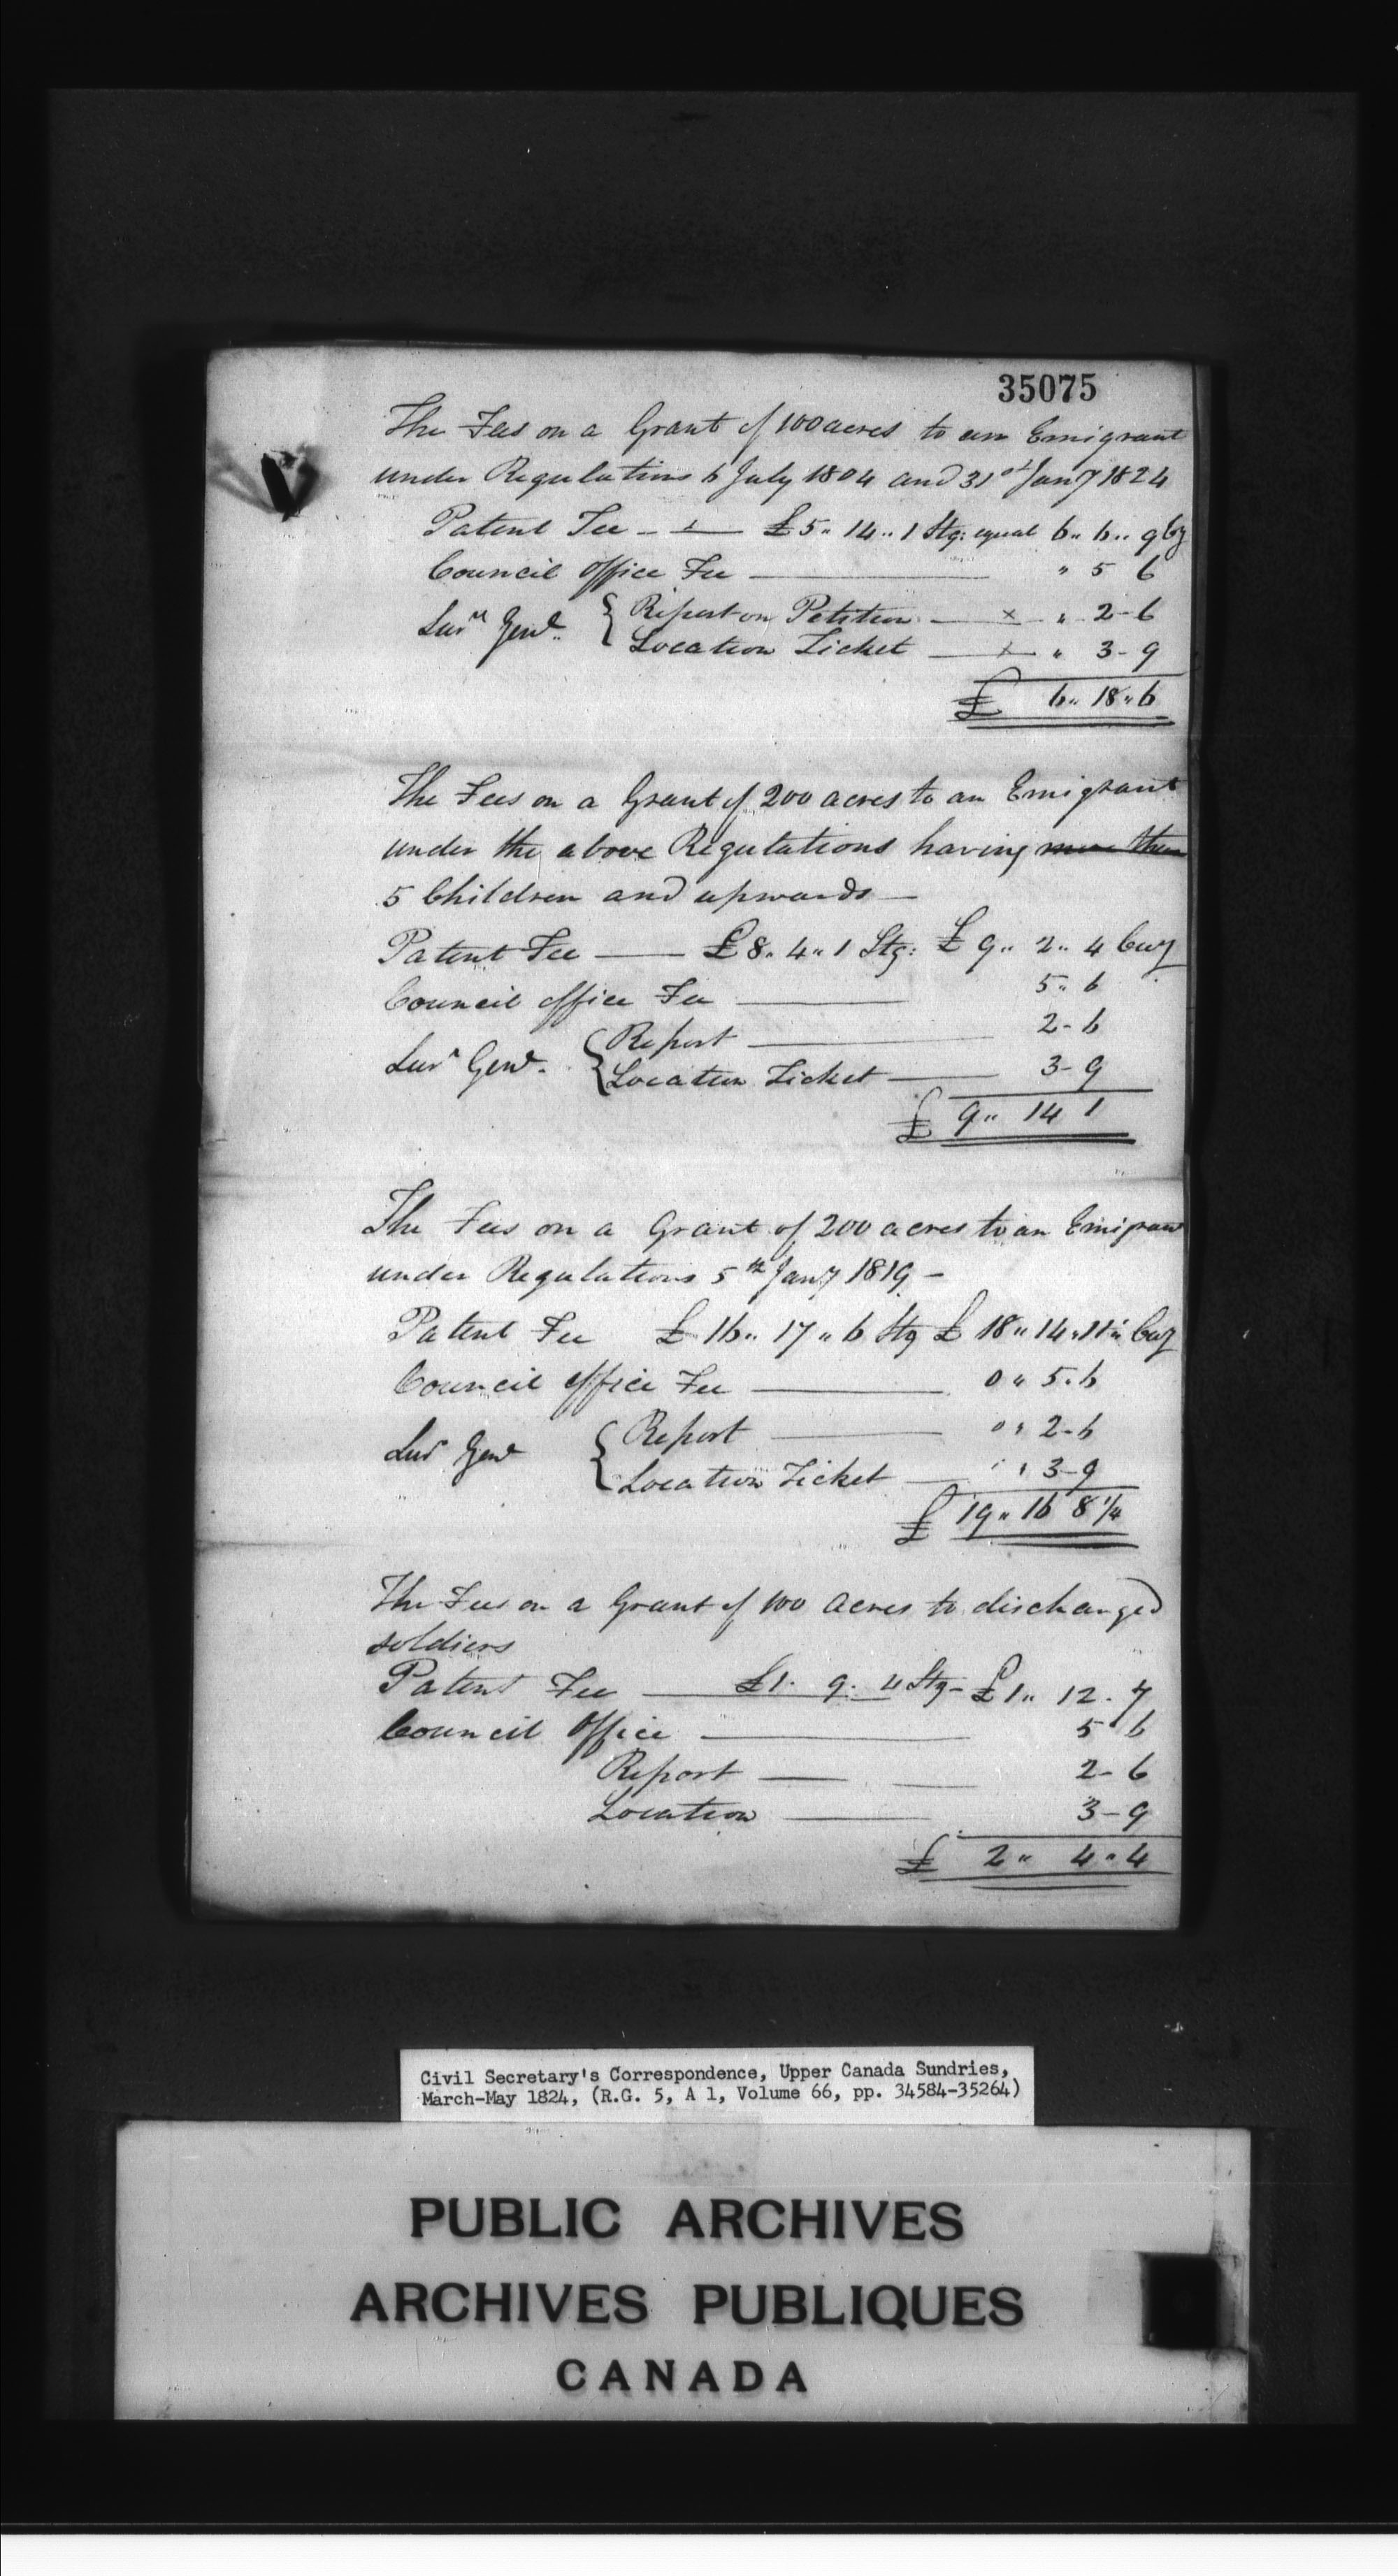 35075
The Fees on a Grant of 100 acres to an Emigrant
under Regulations 6 July 1804 and 31st Jany 1824
Patent Fee - + - £5" 14" 1 Stg: equal 6" 6" 9 Cy
Council Office Fee — " 5 6
Survr Genl. { Report on Petition — x " 2-6
Location Ticket — + " 3-9
£ 6" 18" 6
The Fees on a Grant of 200 acres to an Emigrant
under the above Regulations having more than
5 Children and upwards —
Patent Fee — £8" 4" 1 Stg: £ 9" 2" 4 Curry
Council Office Fee — 5" 6
Survr Genl. { Report — 2-6
Location Ticket — 3-9
£ 9" 14 1
The Fees on a Grant of 200 acres to an Emigrant
under Regulations 5th Jany 1819 —
Patent Fee £ 16" 17" 6 Stg £ 18" 14" 11¼ Cuy
Council Office Fee — 0" 5.6
Surr Genl { Report — 0" 2-6
Location Ticket — " " 3-9
£ 19" 16 8 1/4
The Fees on a Grant of 100 Acres to discharged
soldiers
Patent Fee — £1. 9. 4 Stg - £1" 12. 7
Council Office — 5" 6
Report — 2-6
Location — 3-9
£ 2" 4" 4
Civil Secretary's Correspondence, Upper Canada Sundries,
March-May 1824, (R.G. 5, A 1, Volume 66, pp. 34584-35264)
PUBLIC ARCHIVES
ARCHIVES PUBLIQUES
CANADA